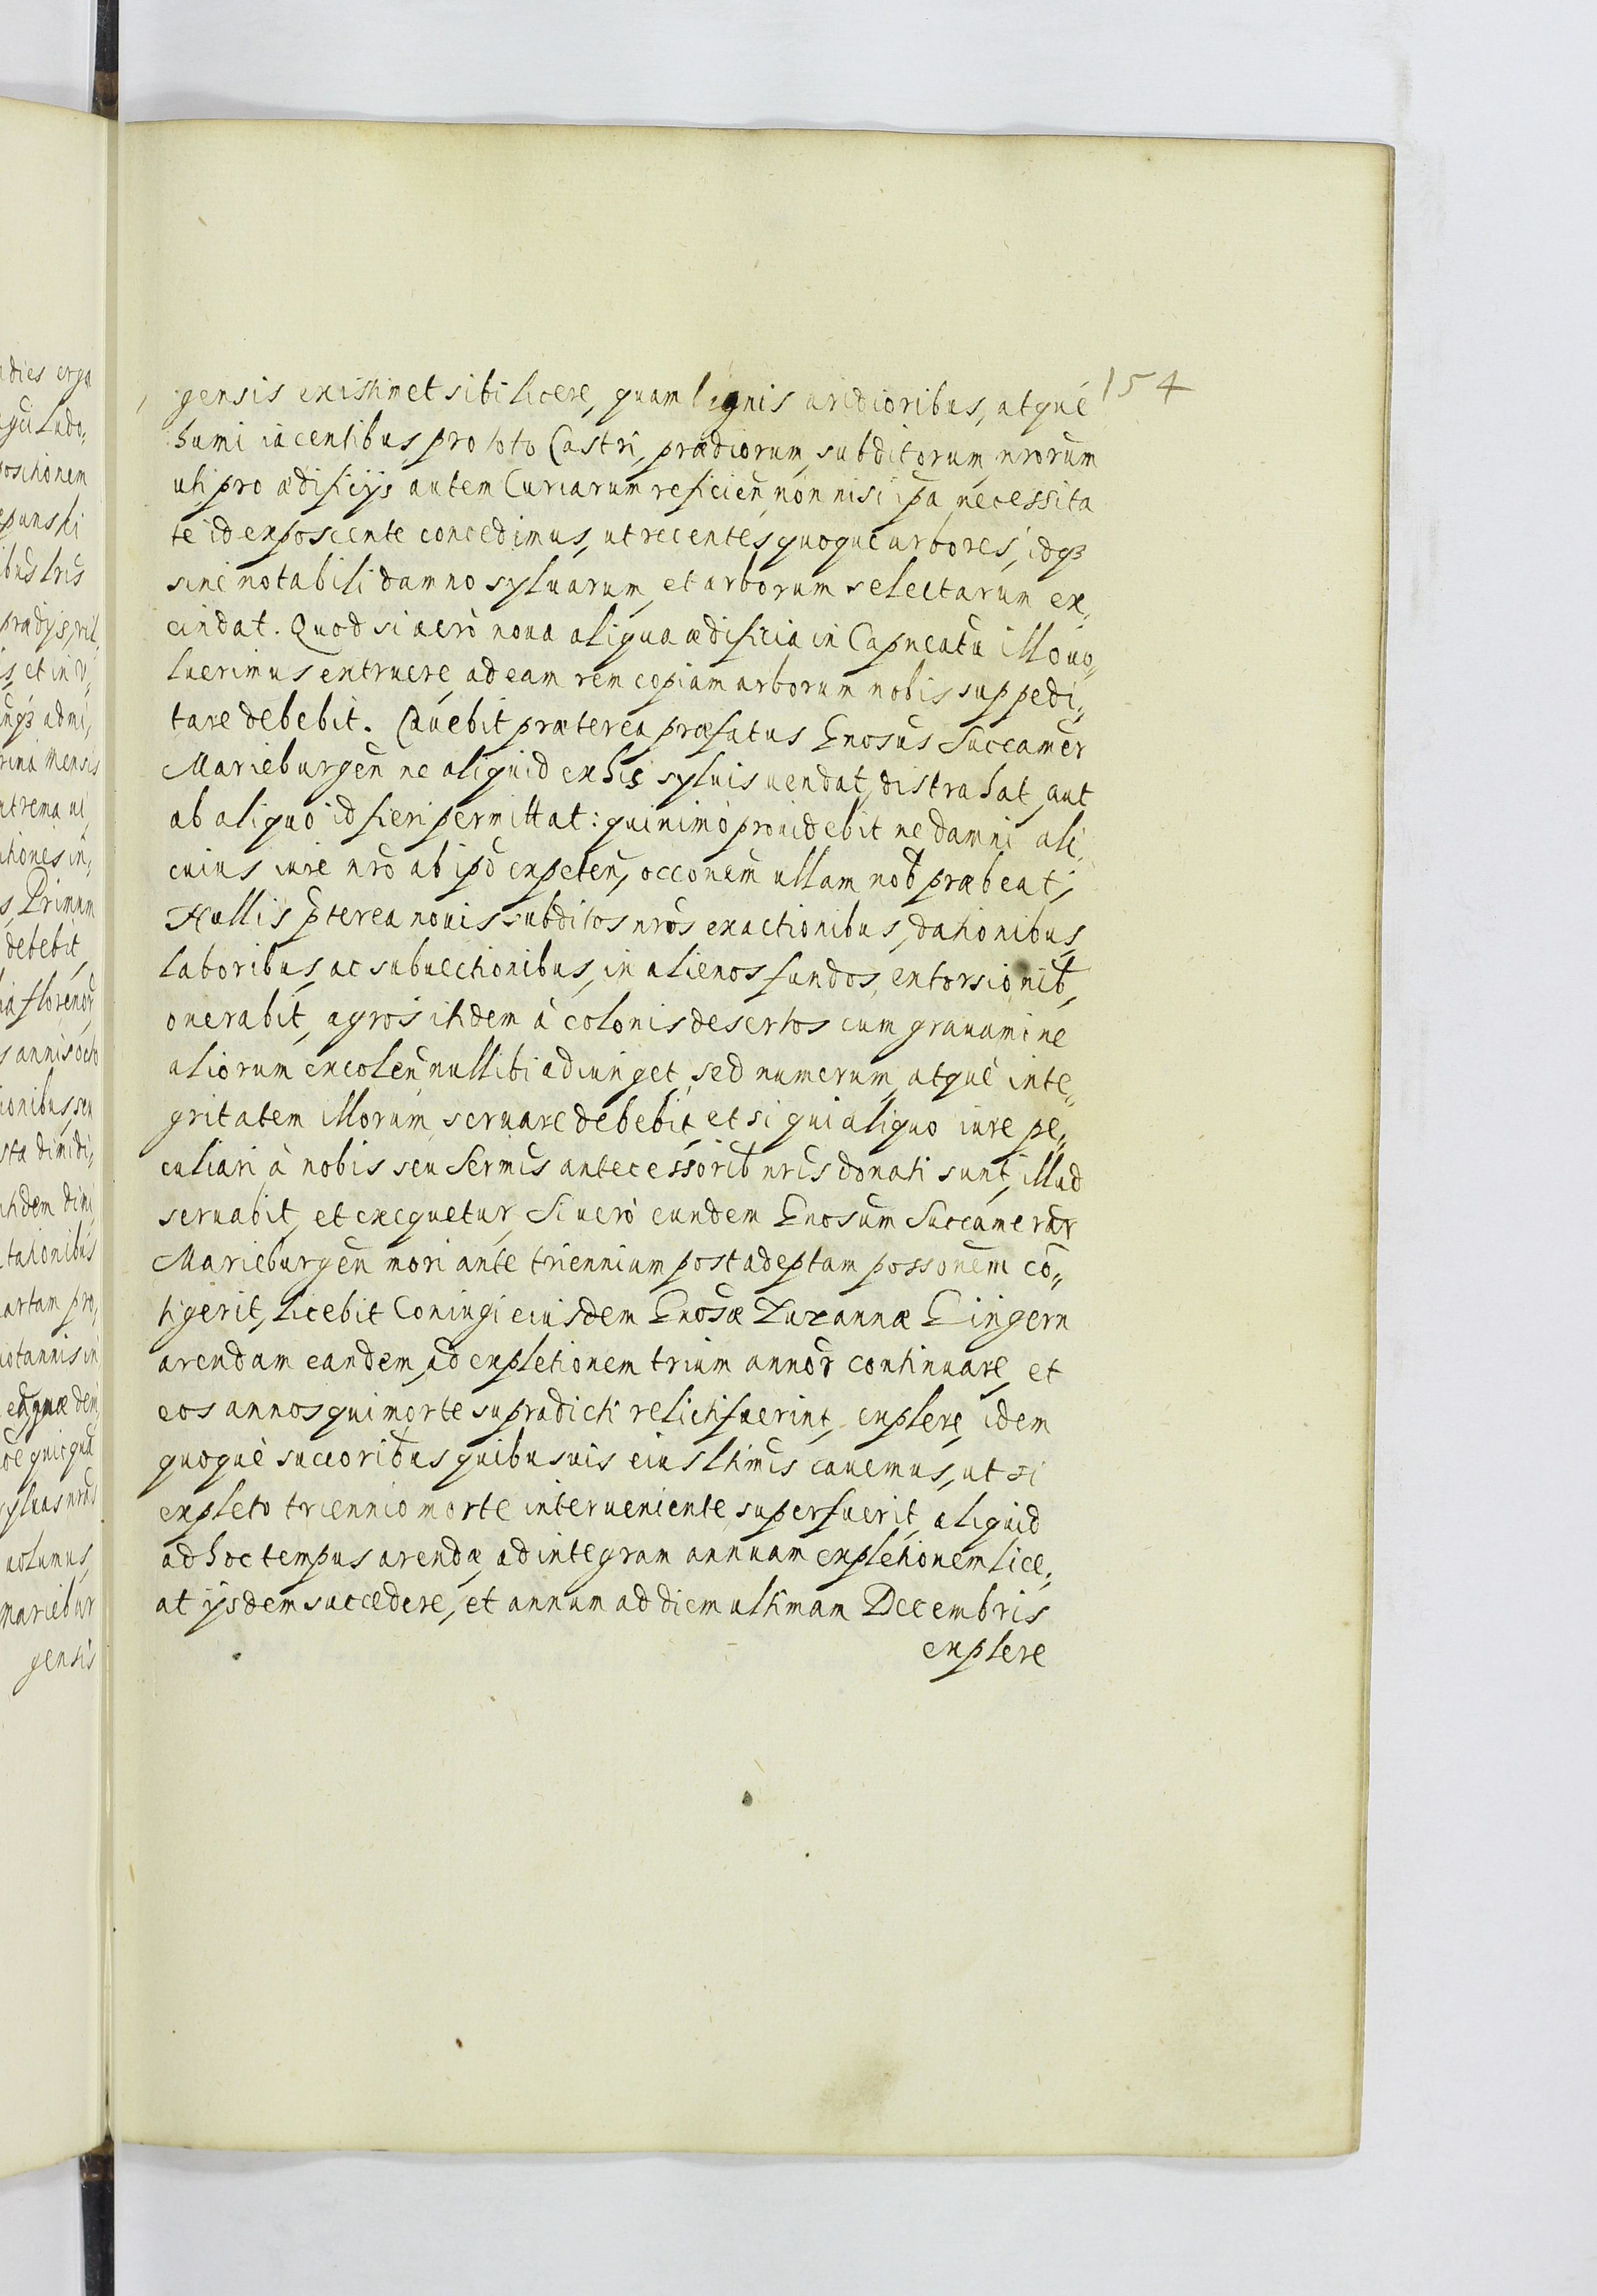 154
gensis existimet sibi licere, quam lignis aridioribus, atque
humi iacentibus pro toto Castri, prædiorum, subditorum nrorum
uti pro ædificijs autem Curiarum reficien, non nisi ipa necessita
te id exposcente concedimus, ut recentes quoque arbores, idq3
sine notabili damno syluarum, et arborum selectarum ex,
cindat. Quod si uero noua aliqua ædificia in Capneatu illo uo,
luerimus extruere, ad eam rem copiam arborum nobis suppedi,
tare debebit. Cauebit præterea præfatus Gnosus Succamer
Marieburgen ne aliquid ex his syluis uendat, distrahat, aut
ab aliquo id fieri permittat: quinimò prouidebit ne damni ali,
cuius iure nro ab ipo expeten, occonem ullam nob præbeat;
Nullis pterea nouis subditos nros exactionibus, dationibus,
laboribus, ac subuectionibus, in alienos fundos, extorsionib,
onerabit, agros itidem à colonis desertos cum grauamine
aliorum excolen nullibi adiunget, sed numerum, atque inte,,
gritatem illorum, seruare debebit, et si qui aliquo iure pe,,
culiari à nobis seu Sermis antecessorib nris donati sunt, illud
seruabit, et exequetur, Si uerò eundem Gnosum Succamerar
Marieburgen mori ante triennium post adeptam possonem co,,
tigerit, licebit Coniugi eiusdem Gnosæ Zuzannæ Eingern
arendam eandem, ad expletionem trium annor continuare, et
eos annos qui morte supradicti relicti fuerint, explere, idem
quoque succoribus quibusuis eius ltimis cauemus, ut si
expleto triennio morte interueniente, superfuerit, aliquid
ad hoc tempus arendæ, ad integram annuam expletionem lice,
at ijsdem succedere, et annum ad diem ultimam Decembris
explere